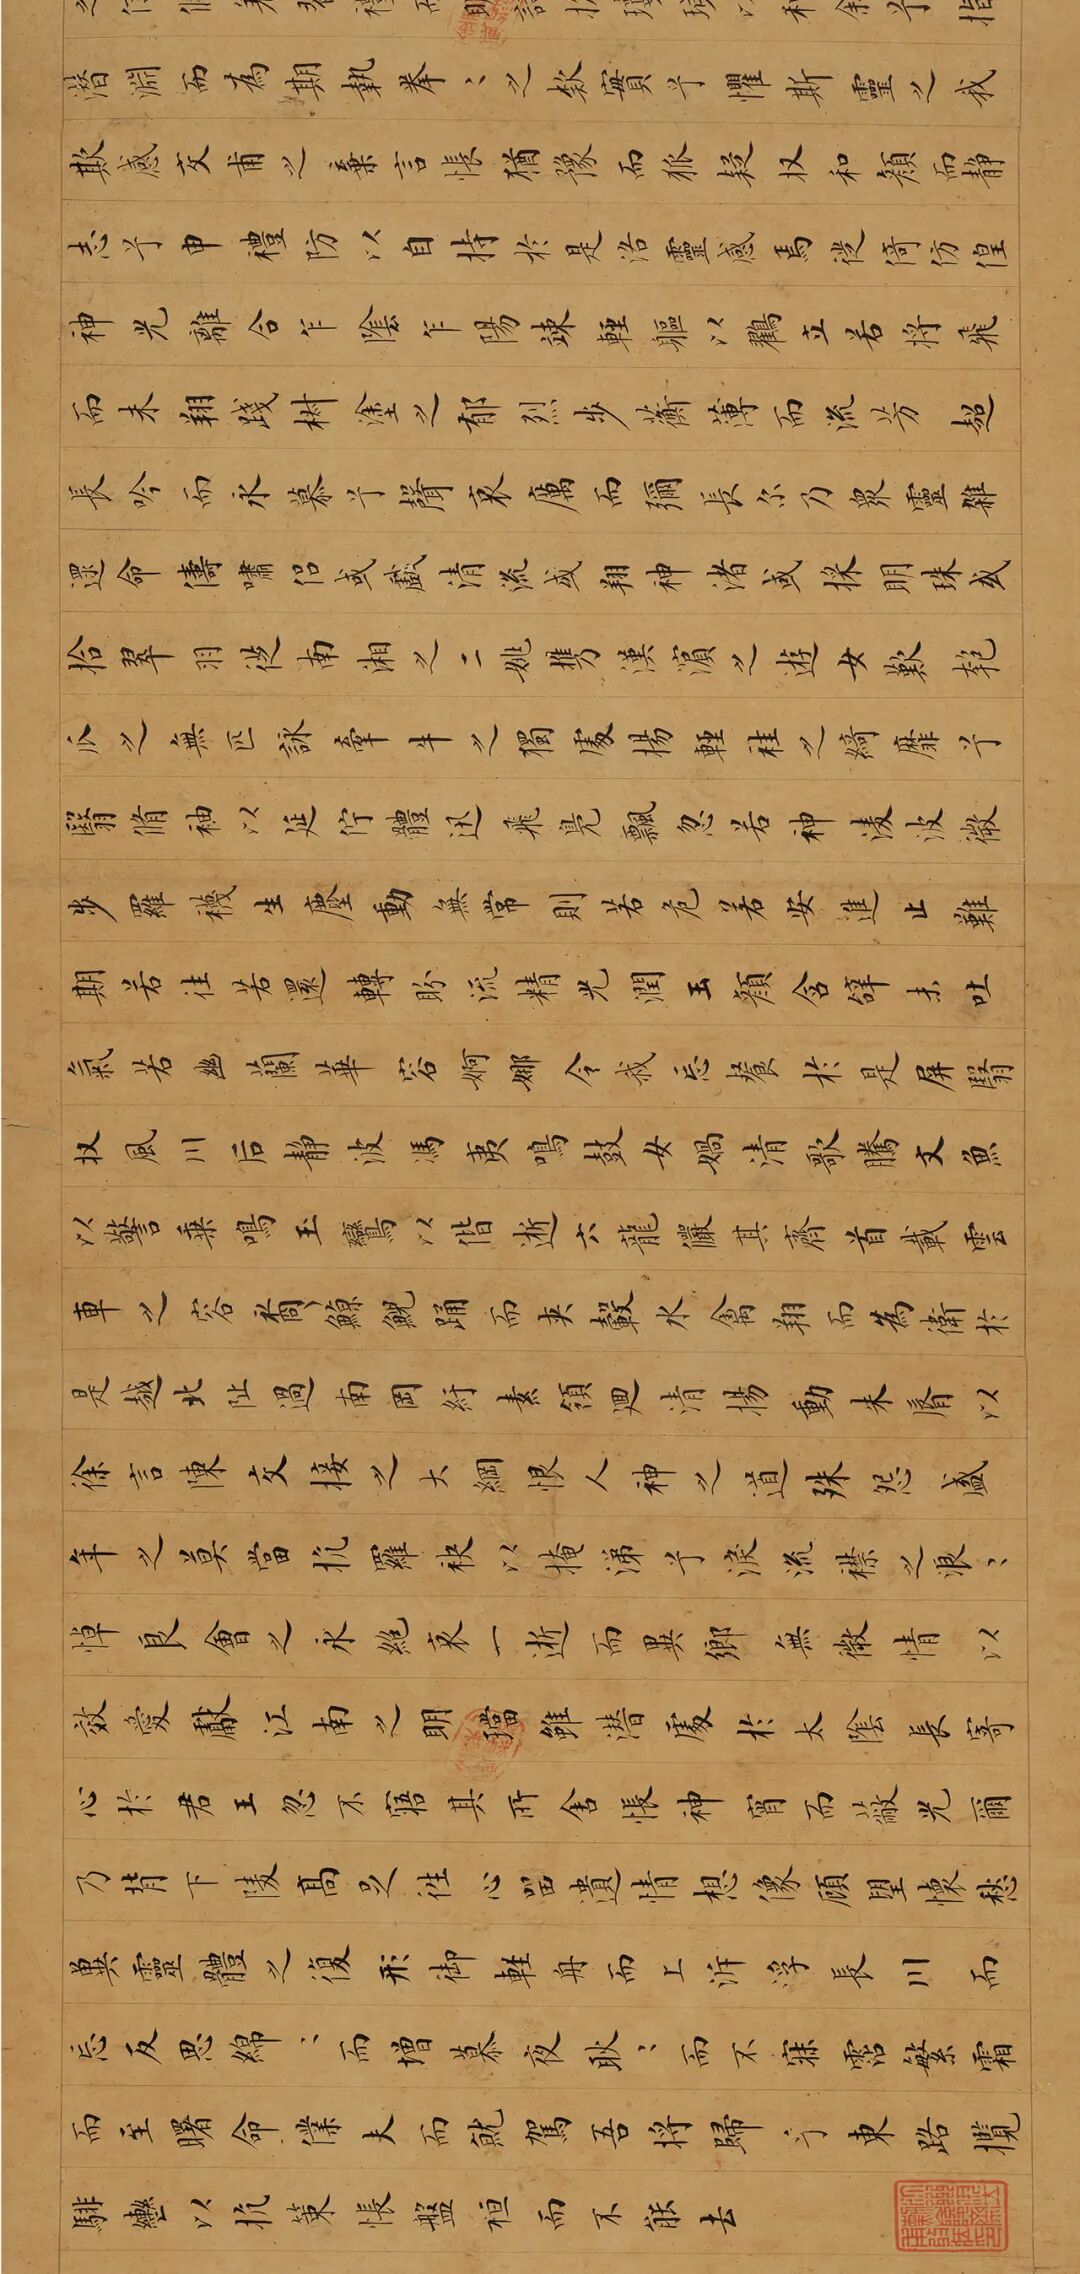 潜淵而為期執拳〻之欵實兮懼斯靈之我
欺感交甫之棄言悵猶豫而狐疑收和顏而静
志兮申禮防以自持於是洛靈感焉徙倚仿偟
神光離合乍陰乍陽竦輕軀以鶴立若將飛
而未翔踐椒塗之郁烈步蘅薄而流芳超
長吟而永慕兮聲哀厲而彌長尓乃衆靈雜
遝命儔嘯侣或戲清流或翔神渚或採明珠或
拾翠羽從南湘之二妣攜漢濱之遊女歎匏
瓜之無匹詠牽牛之獨處揚輕袿之綺靡兮
翳脩袖以延佇體迅飛鳧飄忽若神淩波微
步羅襪生塵動無常則若危若安進止難
期若往若還轉眄流精光潤玉顏含辭未吐
氣若幽蘭華容婀娜令我忘飡於是屏翳
收風川后静波馮夷鳴鼓女媧清歌騰文魚
以警乗鳴玉鸞以偕逝六龍儼其齊首載雲
車之容裔鯨鯢踊而夹轂水禽翔而為衛於
是越北沚過南岡紆素領迴清揚動朱脣以
徐言陳交接之大綱恨人神之道殊怨盛
年之莫當抗羅袂以掩涕兮淚流襟之浪〻
悼良會之永絶哀一逝而異鄉無微情以
效愛獻江南之明璫雖潛處於太陰長寄
心於君王忽不寤其所舍悵神宵而蔽光爾
乃背下陵高足往心留遺情想像顧望懷愁
冀靈體之復形御輕舟而上泝浮長川而
忘反思綿〻而增慕夜耿〻而不寐霑繁霜
而至曙命僕夫而就駕吾將歸乎東路攬
騑轡以抗策悵盤桓而不能去